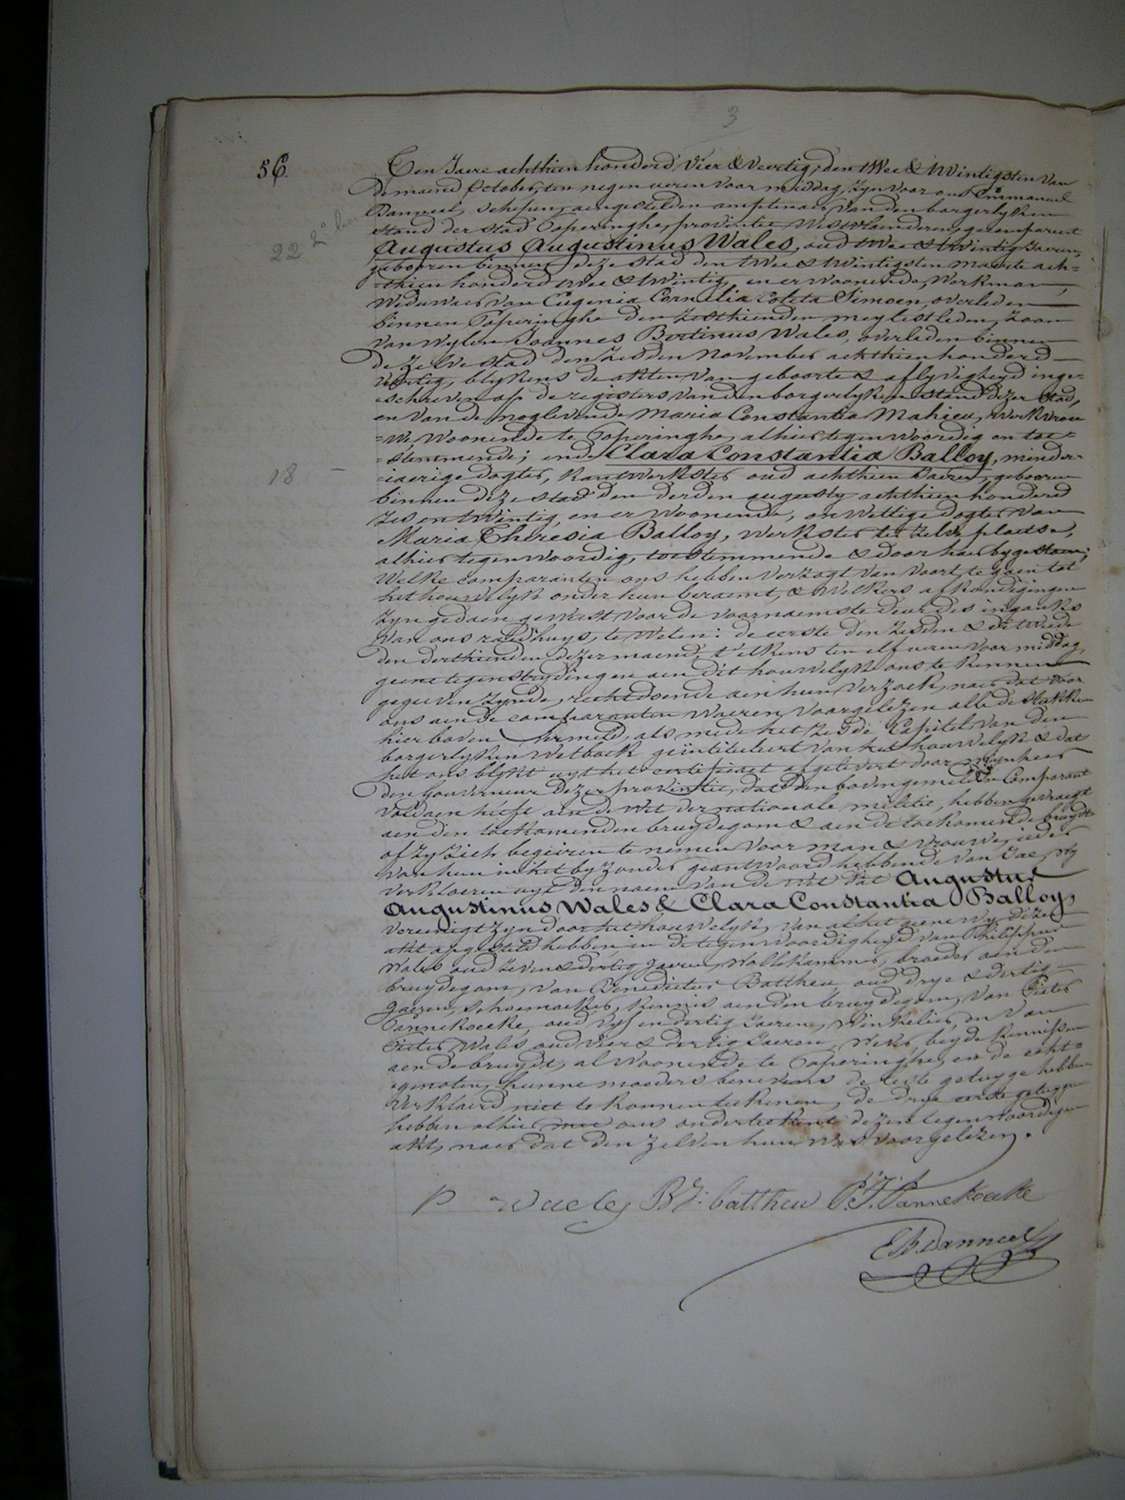 3
56.
Ten Jaere achthien honderd vier & veertig, den twee & twintigsten van
de maend October, ten negen uren voor middag, zyn voor ons Emmanuel
Danneel, schepen, aengestelden amptenaer van den borgerlyken
stand der stad Poperinghe, provintie Westvlaenderen, gecompareert
22 2e
Augustus Augustinus Wales, oud twee & twintig jaeren,
gebooren binnen deze stad den twee & twintigsten maerte ach-
-thien honderd twee & twintig, en er woonende, Werkman,
Weduwaer van Eugenia Cornelia Coleta Simoen, overleden
binnen Poperinghe den zesthienden mey lestleden, zoon
van wylen Joannes Bertinus Wales, overleden binnen
de zelve stad den zesden November achthien honderd
veertig, blykens de akten van geboorte & aflyvigheyd inge-
-schreven op de registers van den borgerlyken stand dezer stad,
en van de noglevende Maria Constantia Mahieu, werkvrou-
-w, woonende te Poperinghe, alhier tegenwoordig en toe-
-stemmende; ende Clara Constantia Balloy, minder-
18 -
-jaerige dogter, kantwerkster oud achthien jaeren, gebooren
binnen deze stad den derden augusty achthien honderd
zes en twintig, en er woonende, onwettige dogter van
Maria Theresia Balloy, werkster ter zelve plaetse,
alhier tegenwoordig, toestemmende & door haer bygestaen;
Welke comparanten ons hebben verzogt van voort te gaen tot
het houwelyk onder hun beraemt, & welkers afkondigingen
zyn gedaen geweest voor de voornaemste deur des ingancks
van ons raedhuys, te weten: de eerste den zesden & de twede
den derthienden dezer maend, t'elkens ten elf uren voor middag,
geene tegenstrydingen aen dit houwelyk ons te kennen
gegeven zynde, rechtdoende aen hun verzoek, naer dat door
ons aen de comparanten waeren voorgelezen alle de stukken
hier boven vermeld, als mede het zesde Capitel van den
borgerlyken Wetboek geïntituleert van het houwelyk & dat
het ons blykt uyt het certificaet afgelevert door mynheer
den gouverneur dezer provintie, dat den bovengemelden Comparant
voldaen heeft aen de Wet der nationale militie, hebben gevraegt
aen den toekomenden bruydegom & aen de toekomende bruyd
of zy zich begeiren te nemen voor man & vrouwe, ieder
van hun in het byzonder geantwoord hebbende van Jae, wy
verklaeren uyt den naem van de wet dat Augustus
Augustinus Wales & Clara Constantia Balloy,
vereenigt zyn door het houwelyk, van al het gene wy dezen
akt opgesteld hebben, in de tegenwoordigheyd van Philippus
Wales oud zeven & dertig jaeren, wollekammer, broeder aen den
bruydegom, van Benedictus Battheu, oud drye & dertig
jaeren, schoemaeker, kennis aen den bruydegom, van Pieter
Pannekoecke, oud vyf en dertig jaeren, Winkelier, en van
Pieter Wales oud vier & dertig jaeren, Wever beyde kennissen
aen de bruydt, al woonende te Poperinghe, en de echt-
-genoten, hunne moeders benevens de leste getuyge hebben
verklaerd niet te konnen teekenen, de drye eerste getuygen
hebben alhier met ons onderteekent dezen tegenwoordigen
akt, naer dat den zelven hun was voorgelezen.
P Waeles BJ: battheu P.J. Pannekoeke
E. Danneel